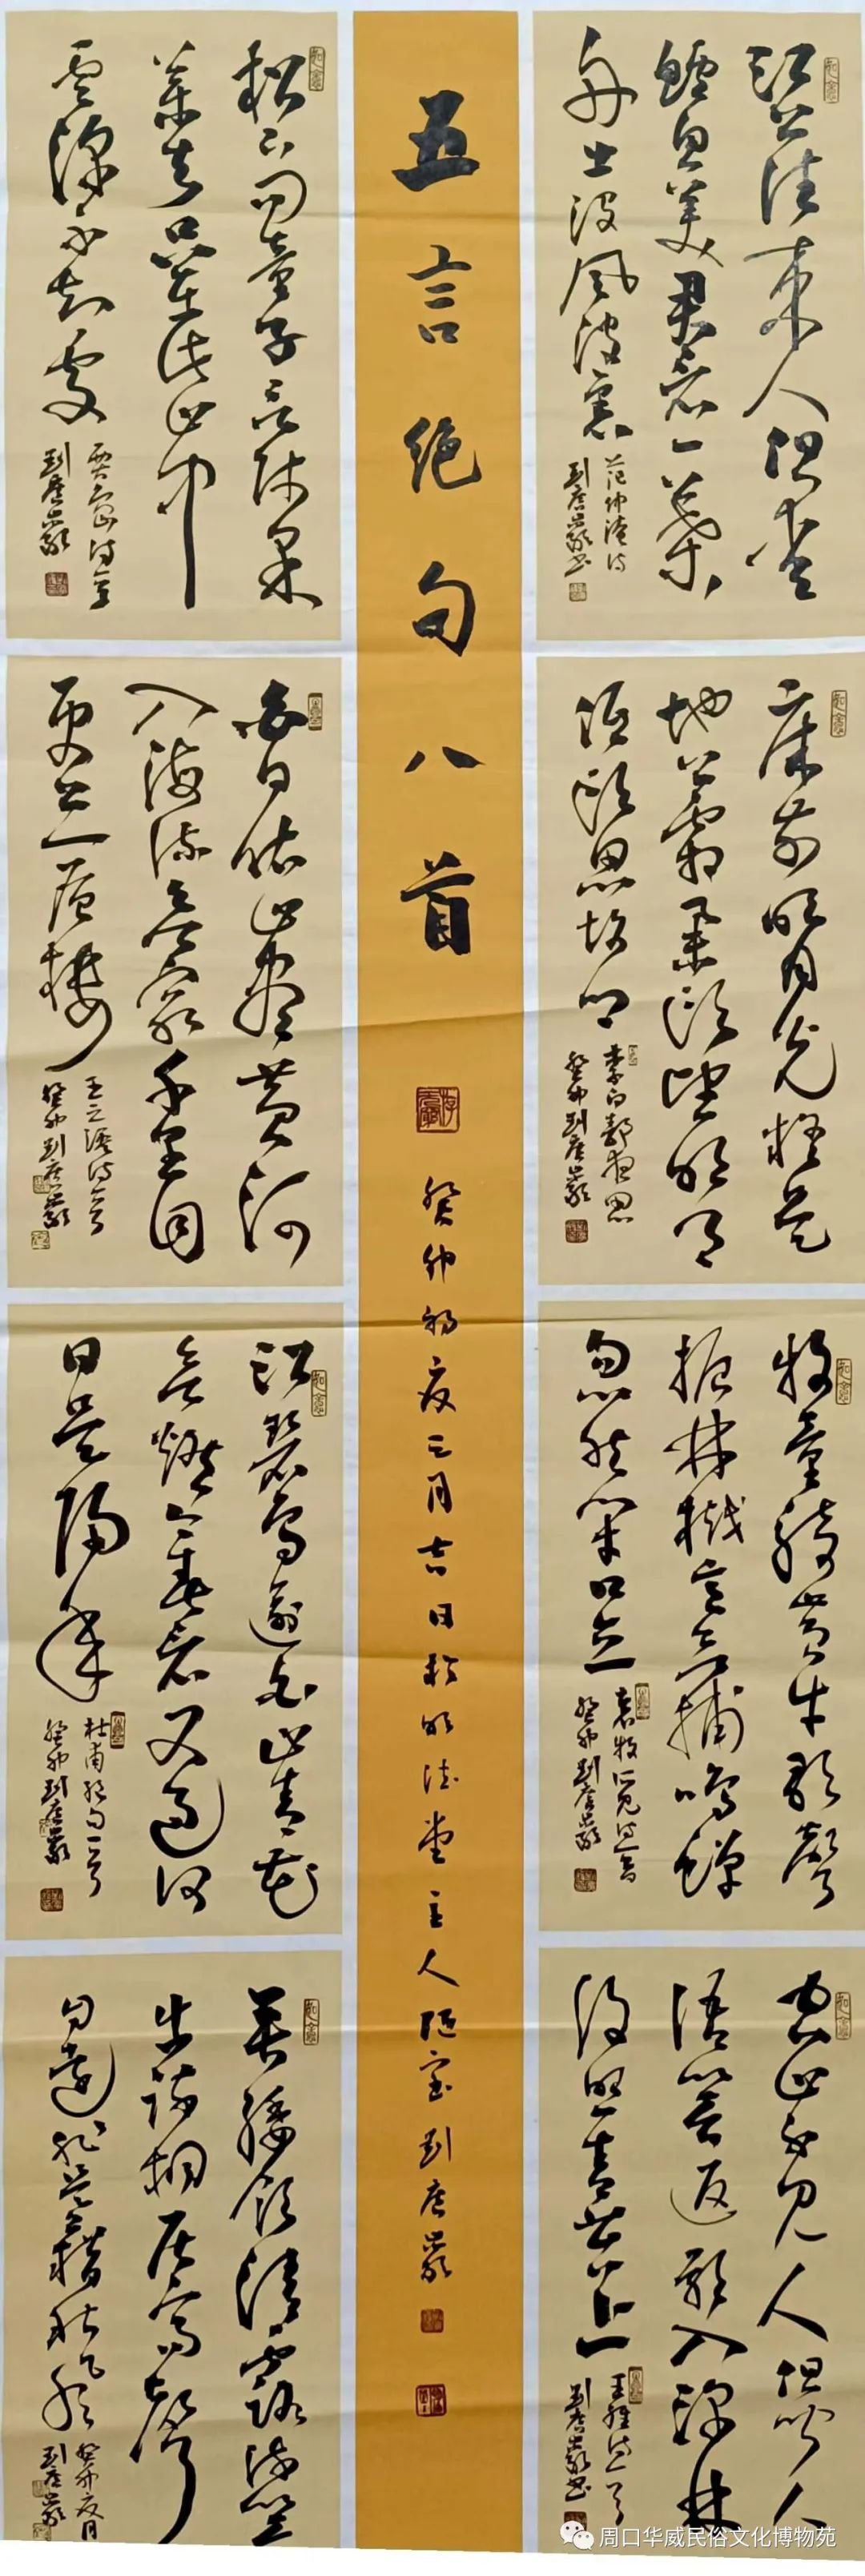 江上往来人但爱
鲈鱼美君看一葉
舟出没风波裏
范仲淹诗
床前明月光疑是
地上霜举头望明月
低头思故乡
李白静夜思
癸卯刘
牧童骑黄牛歌聲
振林樾意欲捕鸣蝉
忽然闭口立
袁枚所见诗一首
癸卯刘
空山不见人但闻人
语响返景入深林
復照青苔上
王维诗一首
五言绝句八首
癸卯初夏三月吉日於明德堂主人陋室刘
松下问童子言师采
药去只在此山中
云深不知处
贾岛诗一首
白日依山尽黄河
入海流欲穷千里目
更上一层楼
王之涣诗一首
癸卯刘
江碧鸟逾白山青花
欲燃今春看又过何
日是归年
杜甫绝句一首
癸卯刘
垂緌饮清露流响
出疏桐居高聲
自远非是藉秋风
癸卯夏月
周口华威民俗文化博物苑